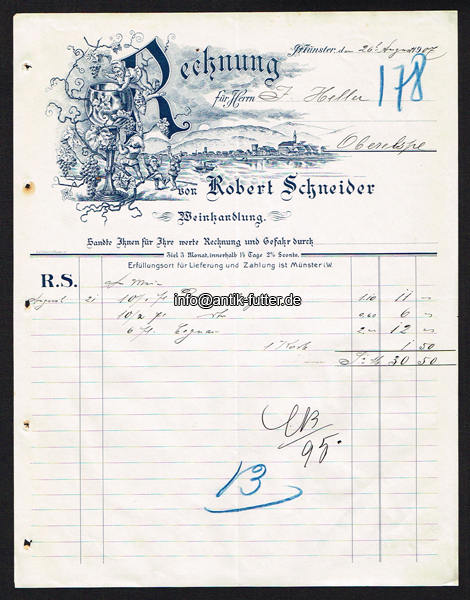 Rechnung
Münster, den 26 August 1907
für Herrn F. Heller
178
Oberelspe
von Robert Schneider
Weinhandlung.
Sandte Ihnen für Ihre werte Rechnung und Gefahr durch
Ziel 3 Monat, innerhalb 14 Tage 2% Sconto.
Erfüllungsort für Lieferung und Zahlung ist Münster i/W.
R.S.
August 21 10/1 fl 1.10 11
info@antik-futter.de
10/2 fl 0.60 6
6 fl. Cognac 2 12
1 Kiste 1 50
30 50
95
B